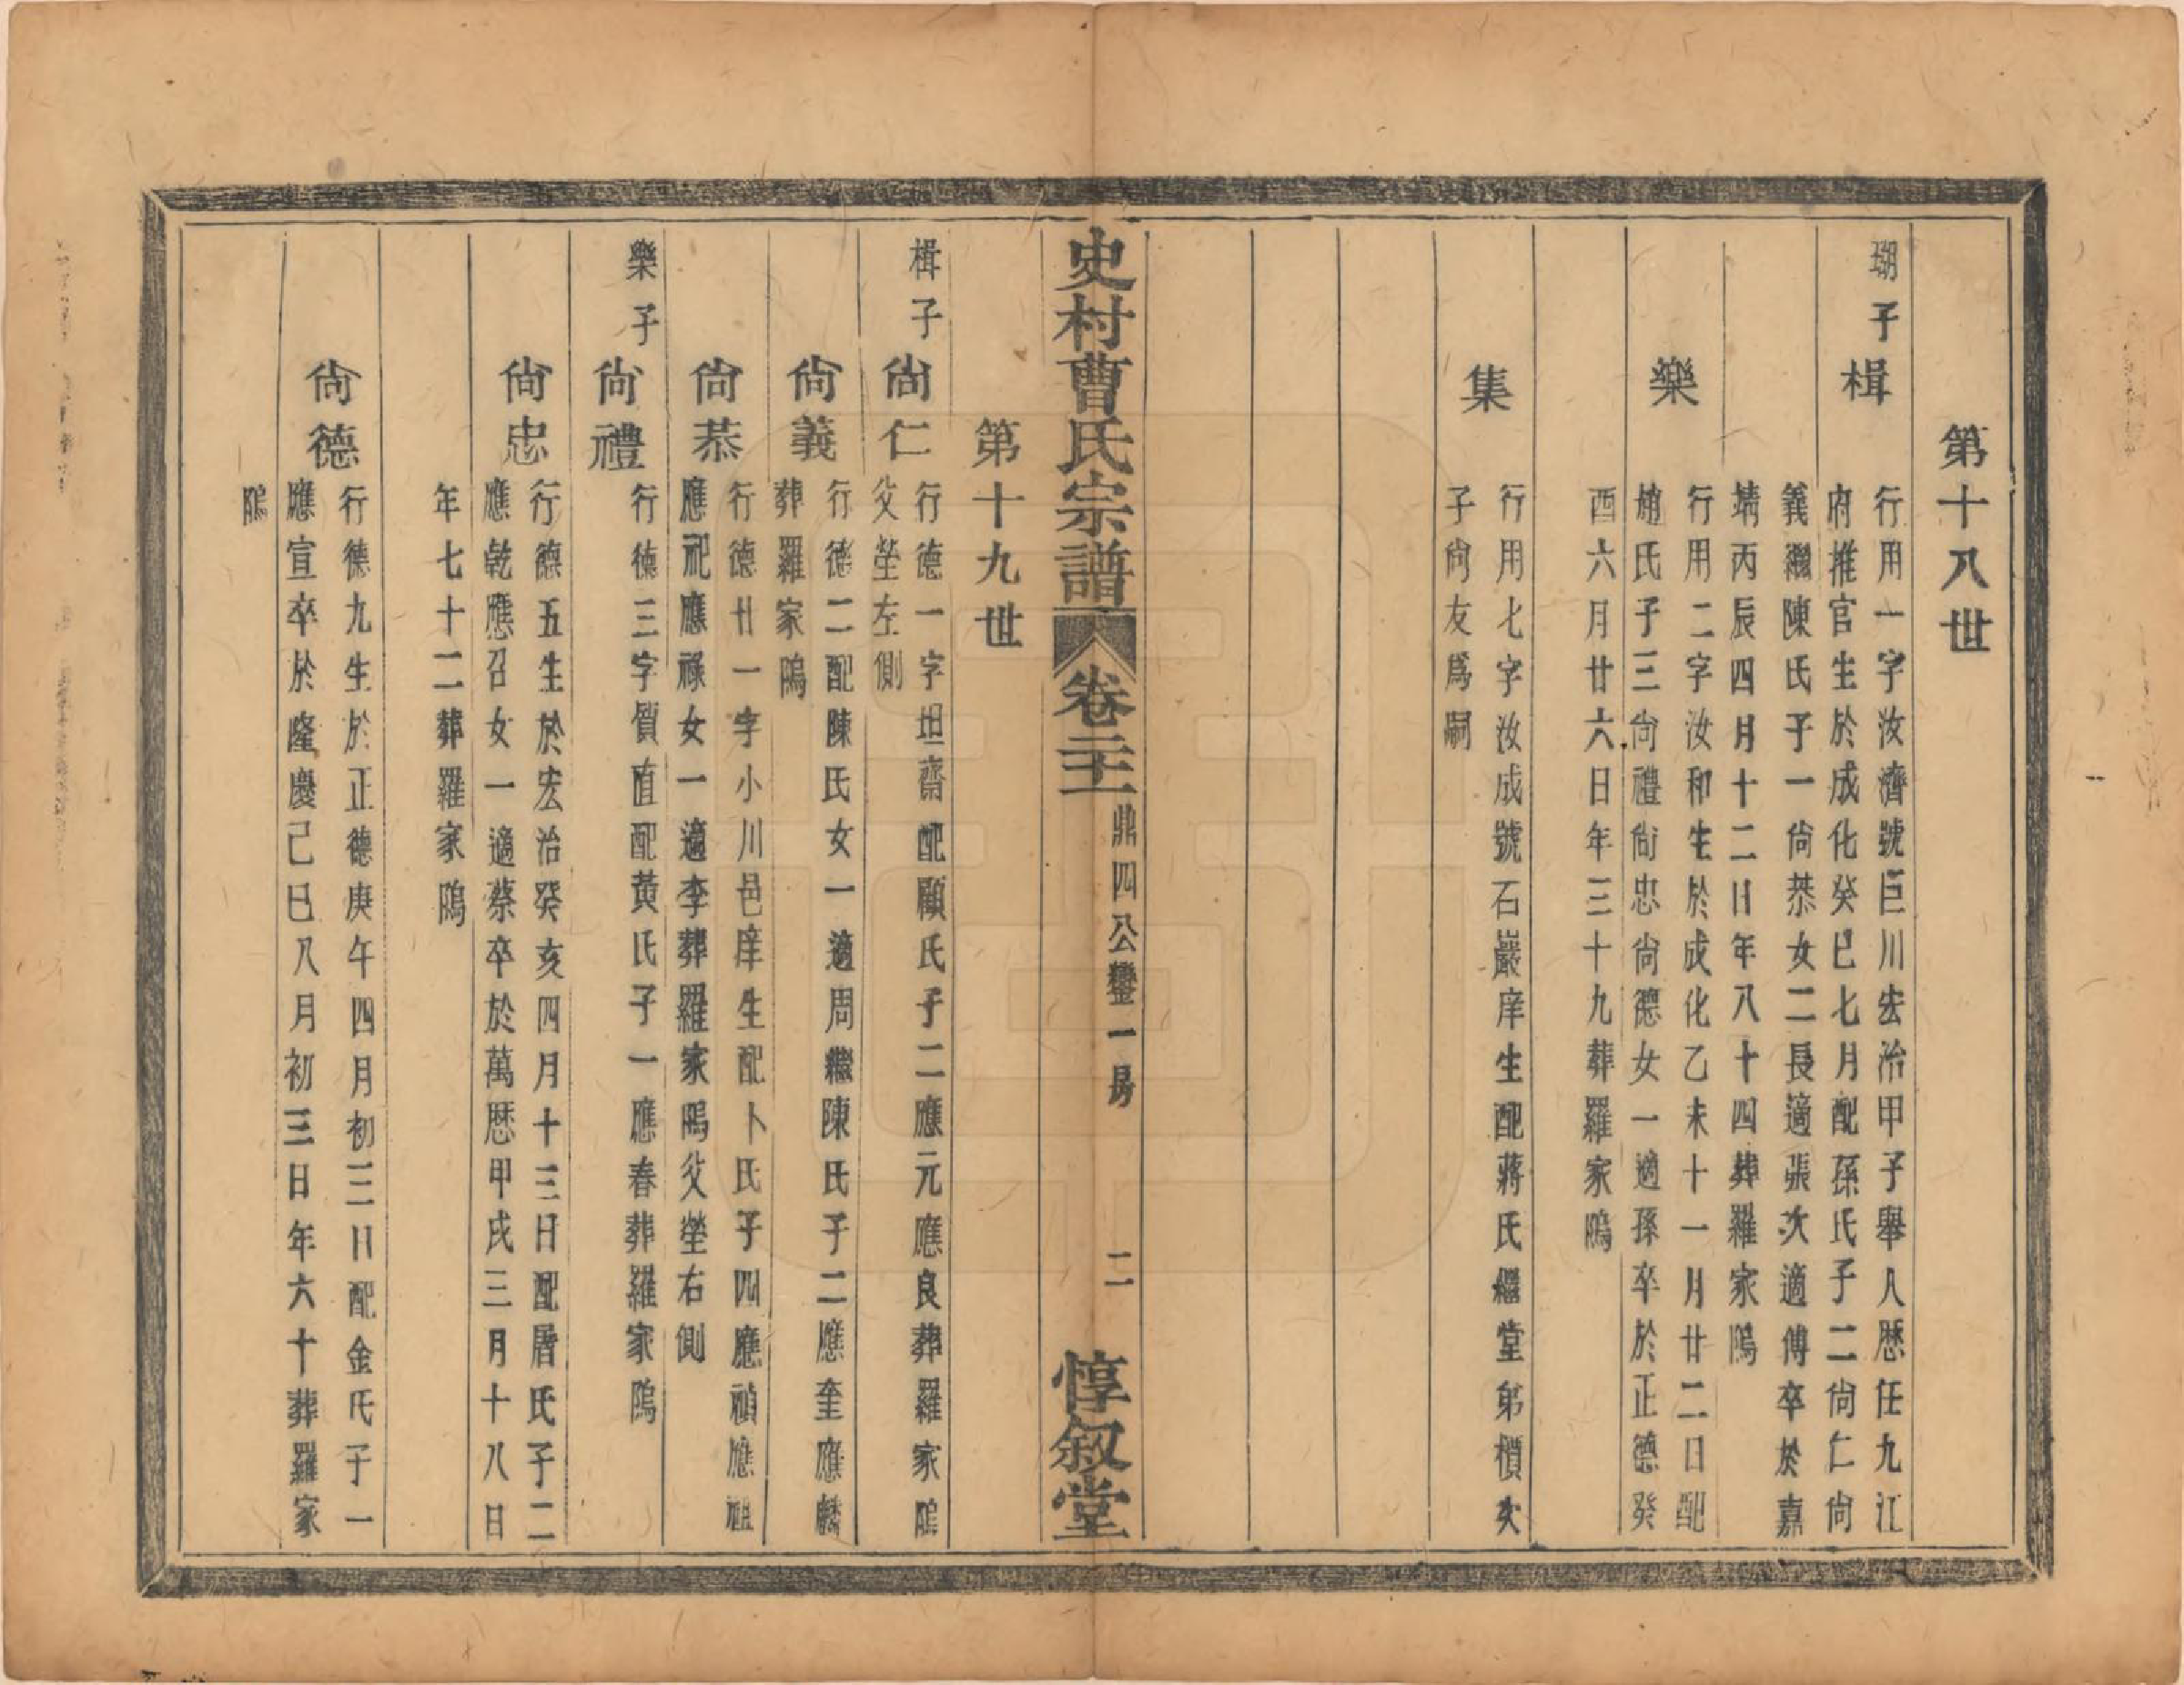 第十八世
瑚子
楫
行用一字汝濟號巨川宏治甲子舉人歴任九江
府推官生於成化癸巳七月配孫氏子二尙仁尙
義繼陳氏子一尙恭女二長適張次適傅卒於嘉
靖丙辰四月十二日年八十四葬羅家隖
樂
行用二字汝和生於成化乙未十一月廿二日配
趙氏子三尙禮尙忠尙德女一適孫卒於正德癸
酉六月廿六日年三十九葬羅家隖
集
行用七字汝成號石巖庠生配蔣氏繼堂弟槓次
子尙友爲嗣
史村曹氏宗譜
卷二十二
鼎四公鑾一房
二
惇叙堂
第十九世
楫子
尙仁
行德一字坦齋配顧氏子二應元應良葬羅家隖
父塋左側
尙義
行德二配陳氏女一適周繼陳氏子二應奎應麟
葬羅家隖
尙恭
行德廿一字小川邑庠生配卜氏子四應禎應祖
應祀應祿女一適李葬羅家隖父塋右側
樂子
尙禮
行德三字質直配黃氏子一應春葬羅家隖
尙忠
行德五生於宏治癸亥四月十三日配屠氏子二
應乾應召女一適蔡卒於萬歴甲戌三月十八日
年七十二葬羅家隖
尙德
行德九生於正德庚午四月初三日配金氏子一
應宣卒於隆慶己巳八月初三日年六十葬羅家
隖